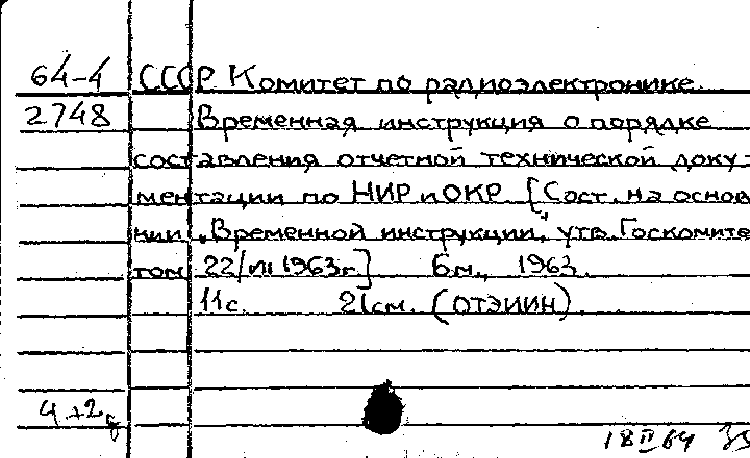 64-4 СССР. Комитет по радиоэлектронике.
2748 Временная инструкция о порядке
составления отчетной технической доку-
ментации по НИР и ОКР [Сост. на основа
нии „Временной инструкции", утв. Госкомите
том 22/VII 1963г.] Б.м., 1963.
11с. 21см. (ОТЭИИН).
4+2
18 II 64